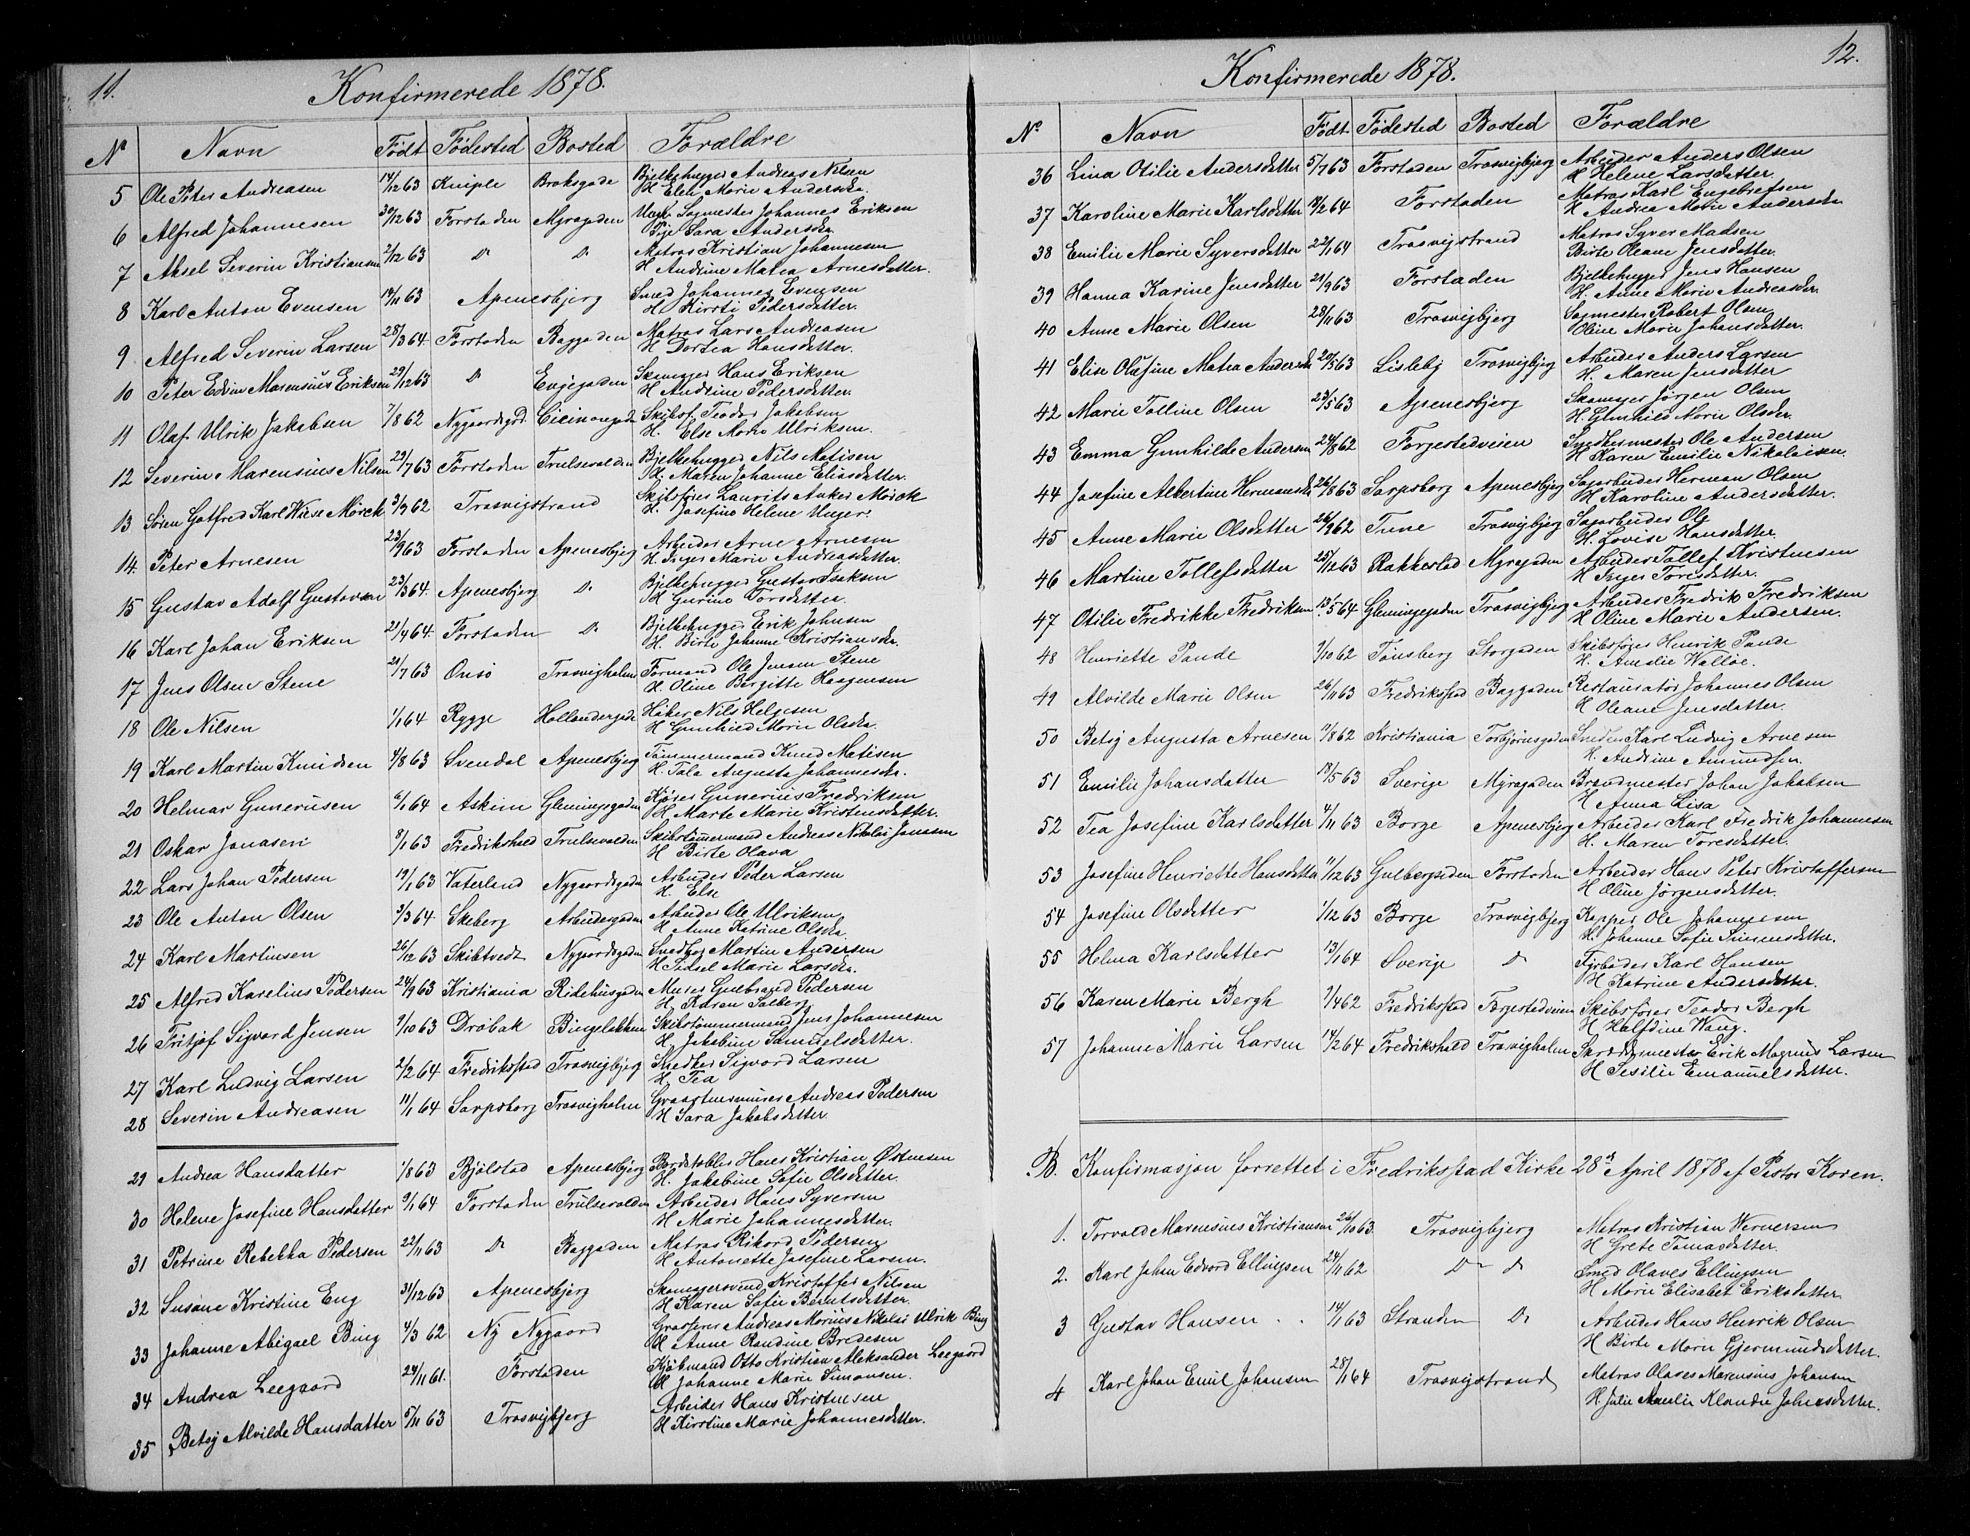 11.
Konfirmerede 1878.
No Navn Födt Födested Bosted Forældre
5 Ole Peter Andreasen 14/12 63 Kniple Broksgade Bjelkehugger Andreas Nilsen
H Elen Marie Andersda.
6 Alfred Johannesen 30/12 63 Forstaden Myragaden Sagmester Johannes Eriksen
Pige Sara Andersda.
7 Aksel Severin Kristiansen 2/12 63 Do Do Matros Kristian Johannesen
H Andrine Matea Arnesdatter.
8 Karl Anton Evensen 14/11 63 Apenesbjerg Smed Johannes Evensen
H. Kirsti Pedersdatter.
9 Alfred Severin Larsen 28/3 64. Forstaden Baggaden Matros Lars Andreasen
H Dortea Hansdatter.
10 Peter Edvin Marensius Eriksen 29/12 63 Do Engegaden Skomager Hans Eriksen
H Andrine Pedersdatter.
11 Olaf Ulrik Jakobsen 7/8 62 Nygaardsgd. Cicinongade Skibsf. Teodor Jakobsen
H. Else Marie Ulriksen.
12 Severin Marensius Nilsen 23/7 63 Forstaden Trulsevolden Bjelkehugger Nils Matisen
H. Maren Johanne Eliasdatter.
13 Sören Gotfred Karl Wiese Mörck 3/9 62 Trosvigstrand Skibsförer Laurits Anker Mörck
H. Josefine Helene Unger.
14. Peter Arnesen 23/9 63 Forstaden Apenesbjerg Arbeider Arne Arnesen
H. Inger Marie Andreasdatter.
15 Gustav Adolf Gustavsen 23/3 64. Apenesbjerg Do Bjelkehugger Gustav Isaksen
H Gurine Torsdatter.
16 Karl Johan Eriksen 21/4 64. Forstaden Do Bjelkehugger Erik Johnsen
H. Birte Johanne Kristiansda.
17 Jens Olsen Stene 21/7 63 Onsö Trosvigholm Formand Ole Jensen Stene
H. Oline Borgitte Haagensen
18 Ole Nilsen 1/1 64 Rygge Hollendergade Höker Nils Helgesen
H Gunhild Marie Olsda.
19 Karl Martin Knudsen 4/8 63 Svendal Apenesbjerg Tömmermand Knud Matisen
H. Tala Augusta Johannesda.
20 Helmar Gunerusen 6/1 64 Askim Glemingegaden Kjörer Gunerius Fredriksen
H Marte Marie Kristensdatter.
21 Oskar Jonasen 8/1 63 Fredrikshald Trulsevolden Skibstömmermand Andreas Nikolai Jonasen
H Birte Olava
22 Lars Johan Pedersen 19/1 63 Vaterland Nygaardsgaden Arbeider Peder Larsen
H. Else
23 Ole Anton Olsen 3/3 64. Skeberg Arbeidergaden Arbeider Ole Ulriksen
H Anne Katrine Olsda.
24 Karl Martinsen 26/12 63 Skibtvedt Nygaardsgaden Snedker Martin Andersen
H Sidsel Marie Larsda.
25 Alfred Karelius Pedersen 24/9 63 Kristiania Ridehusgaden Murer Gulbrand Pedersen
H. Karen Solberg
26 Fritjof Sigvard Jensen 9/10 63 Dröbak Bingeløkken Skibstömmermand Jens Johannesen
H. Jakobine Samuelsdatter.
27 Karl Ludvig Larsen 2/2 64 Fredriksstad Trosvigbjerg Snedker Sigvard Larsen
H. Tea
28 Severin Andreasen 11/1 64 Sarpsborg Trosvigholm Graastensmurer Andreas Pedersen
H Sara Jakobsdatter
29 Andrea Hansdatter 1/8 63 Bjölstad Apenesbjerg Bordstabler Hans Kristian Østnesen
H. Jakobine Sofie Olsdatter.
30 Helene Josefine Hansdatter 9/1 64 Forstaden Trulsevolden Arbeider Hans Syversen
H Marie Johannesdatter.
31 Petrine Rebekka Pedersen 22/11 63 Do Baggaden Matros Rikard Pedersen
H Antonette Josefine Larsen.
32 Susane Kristine Eng 31/12 63 Apenesbjerg Skomagersvend Kristoffer Nilsen
H Karen Sofie Berntsdatter.
33 Johanne Abigael Bing 4/3 62 Ny Nygaard Andreas Morius Nikolai Ulrik Bing
H Anne Randine Bredesen
34 Andrea Leegaard 24/11 61. Forstaden Kjöbmand Otto Kristian Aleksander Leegaard
H Johanne Marie Simonsen.
35 Betsy Alvilde Hansdatter 5/11 63 Trosvigbjerg Arbeider Hans Kristensen
H Kirstine Marie Johannesdatter.
12.
Konfirmerede 1878.
No Navn Födt. Födested Bosted Forældre
36 Lina Otilie Andersdatter 5/7 63 Forstaden Trosvigbjerg Arbeider Anders Olsen
H Helene Larsdatter.
37 Karoline Marie Karlsdatter /2 64 Forstaden Matros Karl Engebretsen
H Andrea Marie Andersda
38 Emilie Marie Syversdatter 22/1 64 Trosvigstrand Matros Syver Madsen
Birte Oleane Jensdatter.
39 Hanna Karine Jensdatter 21/9 63 Forstaden Bjelkehugger Jens Hansen
H. Anne Marie Andreasda.
40 Anne Marie Olsen 23/11 63 Trosvigbjerg Sagmester Robert Olsen
Oline Marie Johansdatter.
41 Elise Olafine Matea Andersda 20/5 63 Lisleby Trosvigbjerg Arbeider Anders Larsen
H. Maren Jensdatter
42 Marie Tolline Olsen 23/5 63 Apenesbjerg Skomager Jörgen Olsen
H. Gunhild Marie Olsda.
43 Emma Gunhilde Andersen 24/8 62 Forgestedveien Snedkermester Ole Andersen
H Karen Emilie Nikolaisen.
44 Josefine Albertine Hermansda 26/8 63 Sarpsborg Apenesbjerg Sagarbeider Herman Olsen
H Karoline Andersdatter.
45 Anne Marie Olsdatter 26/9 62 Tune Trosvigbjerg Sagarbeider Ole
H. Lovise Hansdatter.
46 Martine Tollefsdatter 25/12 63 Rakkestad Myragaden Arbeider Tollef Kristensen
H Inger Toresdatter.
47 Otilie Fredrikke Fredriksen 13/5 64 Glemingegaden Trosvigbjerg Arbeider Fredrik Fredriksen
H Oline Marie Andersen.
48 Henriette Pande /10 62 Tönsberg Storgaden Skibsförer Henrik Pande
H. Amalie Walløe.
49 Alvilde Marie Olsen 26/11 63 Fredriksstad Baggaden Restauratör Johannes Olsen
H Oleane Jensdatter.
50 Betsy Augusta Arnesen 11/8 62 Kristiania Torbjörnsgaden Snedker Karl Ludvig Arnesen
H. Andrine Amundsen.
51 Emilie Johansdatter 19/5 63 Sverige Myragaden Brændmester Johan Jakobsen
H Anna Lisa
52 Tea Josefine Karlsdatter 4/11 63 Borge Apenesbjerg Arbeider Karl Fredrik Johannesen
H. Maren Toresdatter.
53 Josefine Henriette Hansdatter 11/12 63 Gulbergseden Forstaden Arbeider Hans Peter Kristoffersen
H Oline Jörgensdatter.
54 Josefine Olsdatter 1/12 63 Borge Trosvigbjerg Kopper Ole Johannesen
H. Johanne Sofie Simensdatter.
55 Helma Karlsdatter 13/1 64 Sverige Do Fyrböder Karl Hansen
H Katrine Andersdatter.
56 Karen Marie Bergh 7/4 62 Fredriksstad Forgestedveien Skibsförer Teodor Bergh
H Halfdine Wang.
57 Johanne Marie Larsen 14/2 64 Fredrikshald Trosvigholm Skræddermester Erik Magnus Larsen
H Tesilie Emanuelsdatter.
B. Konfirmasjon forrettet i Fredriksstad Kirke 28de April 1878 af Pastor Koren.
1. Torvald Marensius Kristiansen 26/10 63 Trosvigbjerg Matros Kristian Wernersen
H Grete Tomasdatter.
2. Karl Johan Edvard Ellingsen 24/11 62 Do Do Smed Olaves Ellingsen
H Marie Elisabet Eriksdatter.
3 Gustav Hansen 14/1 63 Stranden Do Arbeider Hans Henrik Olsen
H Birte Marie Gjermundsdatter.
4 Karl Johan Emil Johansen 28/1 64 Trosvigstrand Matros Olaves Marensius Johansen
H Julie Amalie Klandie Johnesdatter.